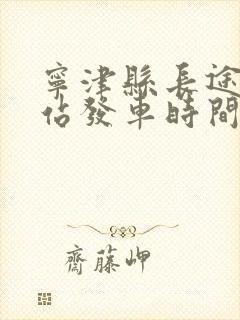 寧津縣長途
佔發車時間
齋藤岬